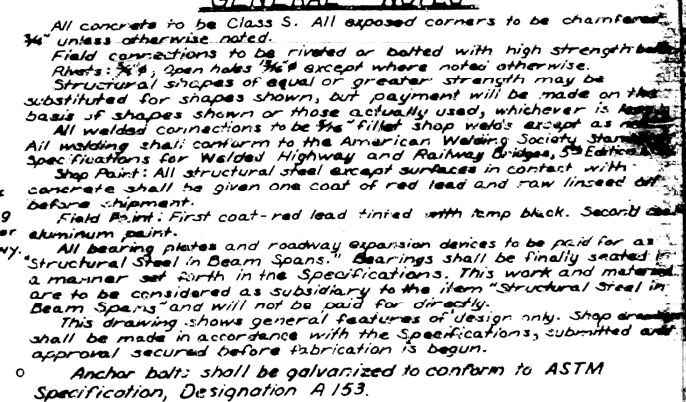 GENERAL NOTES
All concrete to be Class S. All exposed corners to be chamfered
3/4" unless otherwise noted.
Field connections to be riveted or bolted with high strength bolts.
Rivets: 3/4"ø, Open holes 13/16"ø except where noted otherwise.
Structural shapes of equal or greater strength may be
substituted for shapes shown, but payment will be made on the
basis of shapes shown or those actually used, whichever is
All welded connections to be 5/16" fillet shop welds except as
All welding shall conform to the American Welding Society Standard
Specifications for Welded Highway and Railway Bridges, 5th Edition
Shop Paint: All structural steel except surfaces in contact with
concrete shall be given one coat of red lead and raw linseed oil
before shipment.
g
Field Paint: First coat-red lead tinted with lamp black. Second coat
or aluminum paint.
WY. All bearing plates and roadway expansion devices to be paid for as
"Structural Steel in Beam Spans." Bearings shall be finally seated in
a manner set forth in the Specifications. This work and material
are to be considered as subsidiary to the item "Structural Steel in
Beam Spans" and will not be paid for directly.
This drawing shows general features of design only. Shop drawings
shall be made in accordance with the Specifications, submitted and
approval secured before fabrication is begun.
o Anchor bolts shall be galvanized to conform to ASTM
Specification, Designation A 153.